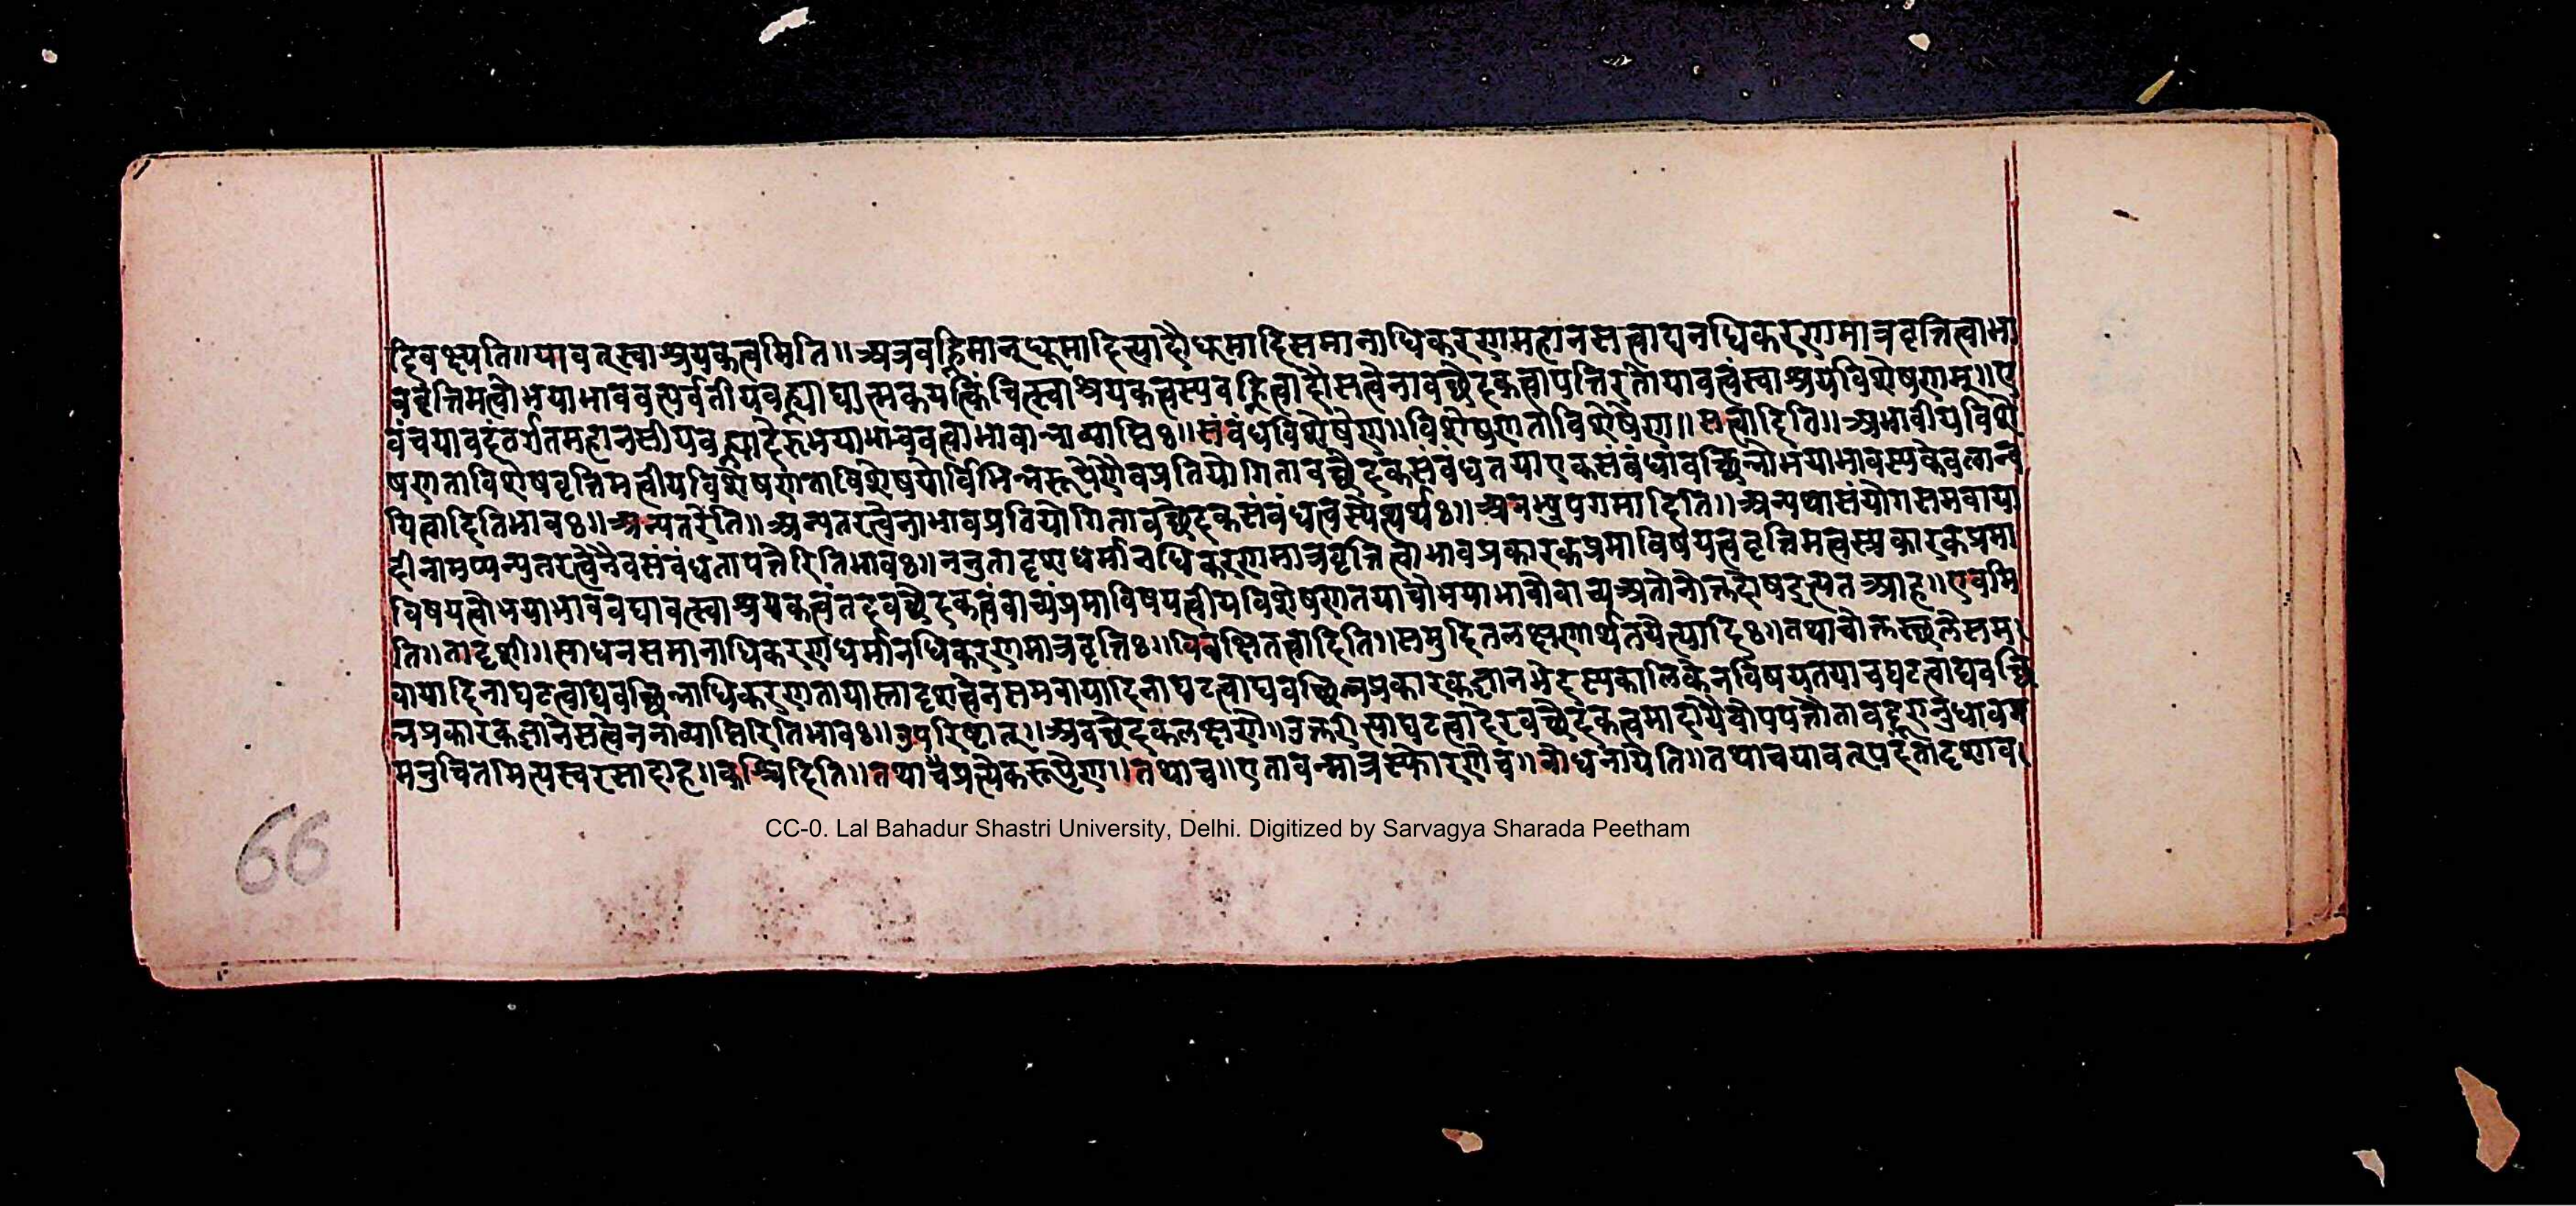 दिवक्ष्यति॥यावत्स्वाश्रयकत्वमिति॥अत्रवह्निमान्धूमादित्यादौधूमादिसमानाधिकरणमहानसत्वाद्यनधिकरणमात्रवृत्तित्वाभा
ववृत्तिमत्वोभयाभाववत्पर्वतीयवह्न्याद्यात्मकयत्किंचित्स्वाश्रयकत्वस्यवह्नित्वादौसत्वेनावच्छेदकत्वापत्तिरतोयावत्वंस्वाश्रयविशेषणम्॥ए
वंचयावदंतर्गतमहानसीयवह्न्यादेरुभयाभाववत्वाभावान्नाव्याप्तिः॥संबंधविशेषेण॥विशेषणताविशेषेण॥सत्वादिति॥अभावीयविशे
षणताविशेषवृत्तिमत्वीयविशेषणताविशेषयोर्विभिन्नरूपेणैवप्रतियोगितावच्छेदकसंबंधतयाएकसंबंधावच्छिन्नोभयाभावस्यकेवलान्व
यित्वादितिभावः॥अन्यतरेति॥अन्यतरत्वेनाभावप्रतियोगितावच्छेदकसंबंधत्वस्येत्यर्थः॥अनभ्युपगमादिति॥अन्यथासंयोगसमवाया
दीनामप्यन्यतरत्वेनैवसंबंधतापत्तेरितिभावः॥ननुतादृशधर्मानधिकरणमात्रवृत्तित्वाभावप्रकारकप्रमाविषयत्ववृत्तिमत्वस्प्रकारकप्रमा
विषयत्वोभयाभाववद्यावत्स्वाश्रयकत्वंतदवच्छेदकत्वंवाच्यंप्रमाविषयत्वीयविशेषणतयावोभयाभावोवाच्यअतोनोक्तदोषइत्यतआह॥एवमि
ति॥तादृशी॥साधनसमानाधिकरणधर्मानधिकरणमात्रवृत्तिः॥विवक्षितत्वादिति॥समुदितलक्षणार्थतयेत्यादिः॥तथाचोक्तस्थलेसम
वायादिनाघटत्वाद्यवच्छिन्नाधिकरणतायास्तादृशत्वेनसमवायादिनाघटत्वाद्यवच्छिन्नप्रकारकज्ञानभेदस्यकालिकेनविषयतयाचघटत्वाद्यवच्छि
न्नप्रकारकज्ञानेसत्वेननाव्याप्तिरितिभावः॥उपरिष्टात्॥अवच्छेदकलक्षणे॥उक्तरीत्याघटत्वादेरवच्छेदकत्वमादायैवोपपत्तौतावद्दूरानुधावन
मनुचितमित्यस्वरसादाह॥कश्चिदिति॥तथाचप्रत्येकरूपेण॥तथाच॥एतावन्मात्रस्फोरणेच॥बोधनायेति॥तथाचयावत्पदंतादृशाव
66
CC-0. Lal Bahadur Shastri University, Delhi. Digitized by Sarvagya Sharada Peetham